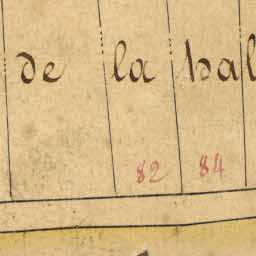 de la hal
82 84